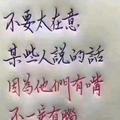 不要太在意
某些人說的話
因為他們有嘴
不一定有